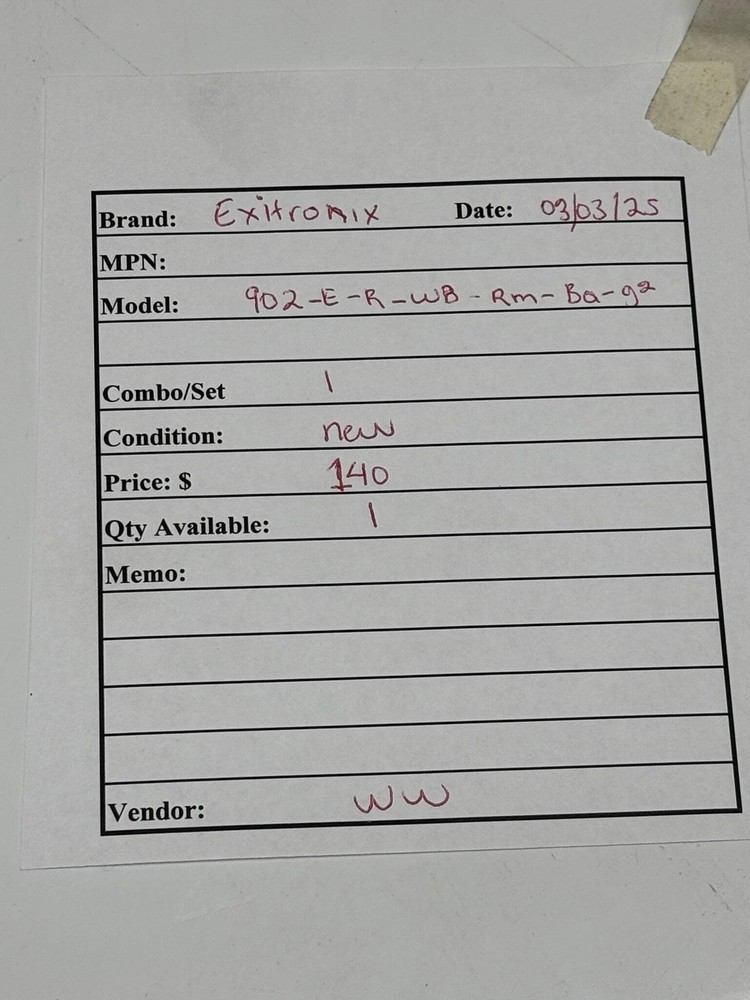 Brand: Exitronix Date: 03/03/25
MPN:
Model: 902-E-R-WB-Rm-Ba-g2
Combo/Set 1
Condition: new
Price: $ 140
Qty Available: 1
Memo:
Vendor: WW